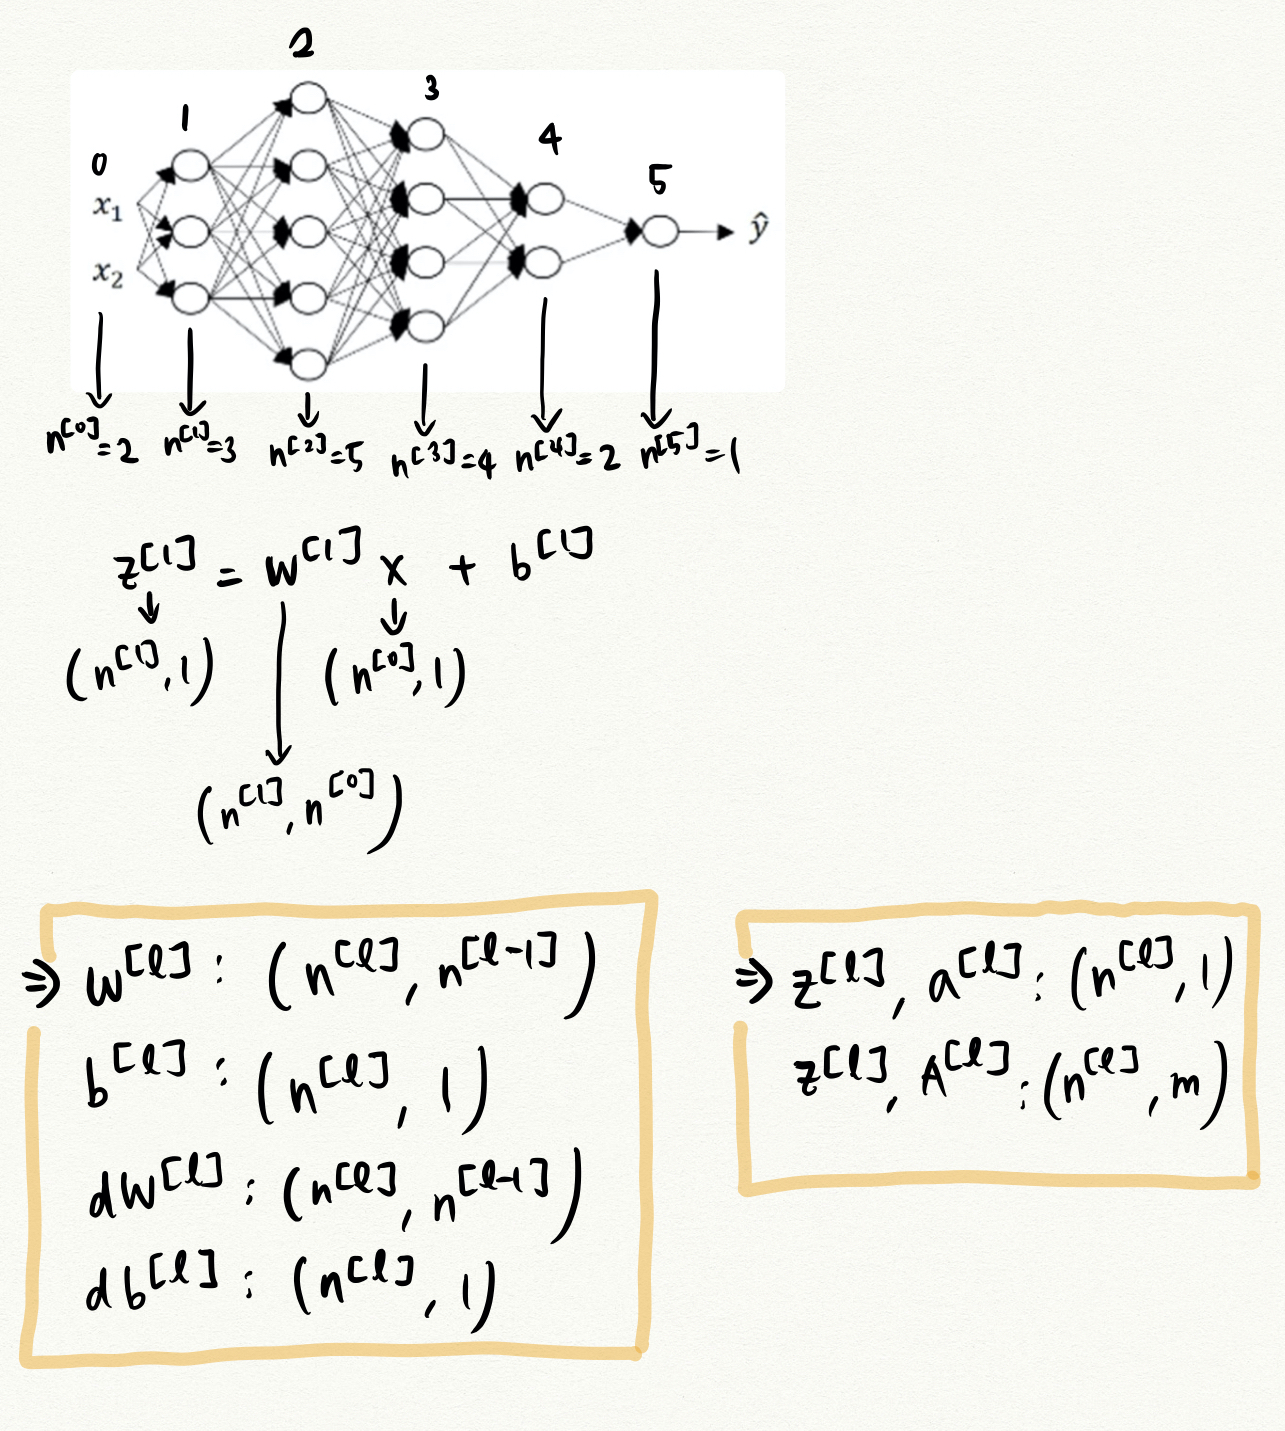 2
3
1
4
0
5
x₁
ŷ
x₂
n^[0]=2 n^[1]=3 n^[2]=5 n^[3]=4 n^[4]=2 n^[5]=1
z^[1] = w^[1] x + b^[1]
(n^[1], 1) (n^[0], 1)
(n^[1], n^[0])
⇒ w^[l] : (n^[l], n^[l-1])
b^[l] : (n^[l], 1)
dw^[l] : (n^[l], n^[l-1])
db^[l] : (n^[l], 1)
⇒ z^[l], a^[l] : (n^[l], 1)
z^[l], A^[l] : (n^[l], m)